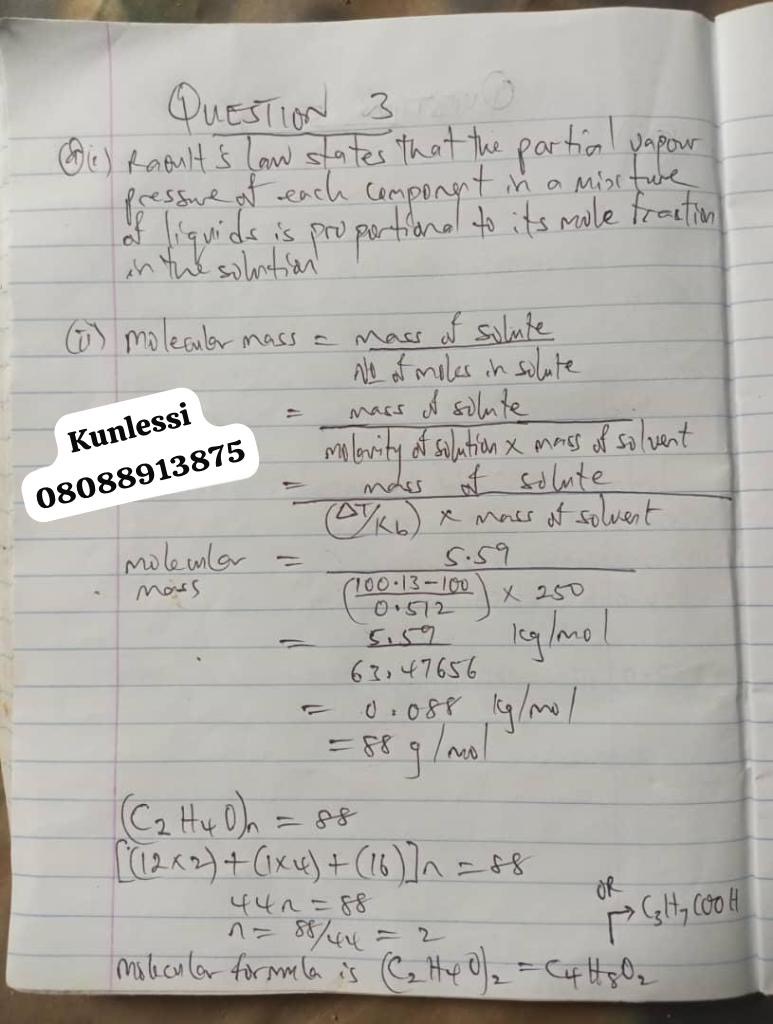 QUESTION 3
(a)(i) Raoult's law states that the partial vapour
pressure of each component in a mixture
of liquids is proportional to its mole fraction
in the solution
(ii) molecular mass = mass of solute
No of moles in solute
= mass of solute
molarity of solution x mass of solvent
= mass of solute
(ΔT/Kb) x mass of solvent
Kunlessi
08088913875
molecular mass = 5.59
(100.13-100
0.512) x 250
= 5.59 kg/mol
63.47656
= 0.088 kg/mol
= 88 g/mol
(C2H4O)n = 88
[(12x2)+(1x4)+(16)]n = 88
44n = 88
n = 88/44 = 2
OR
→ C3H7COOH
molecular formula is (C2H4O)2 = C4H8O2